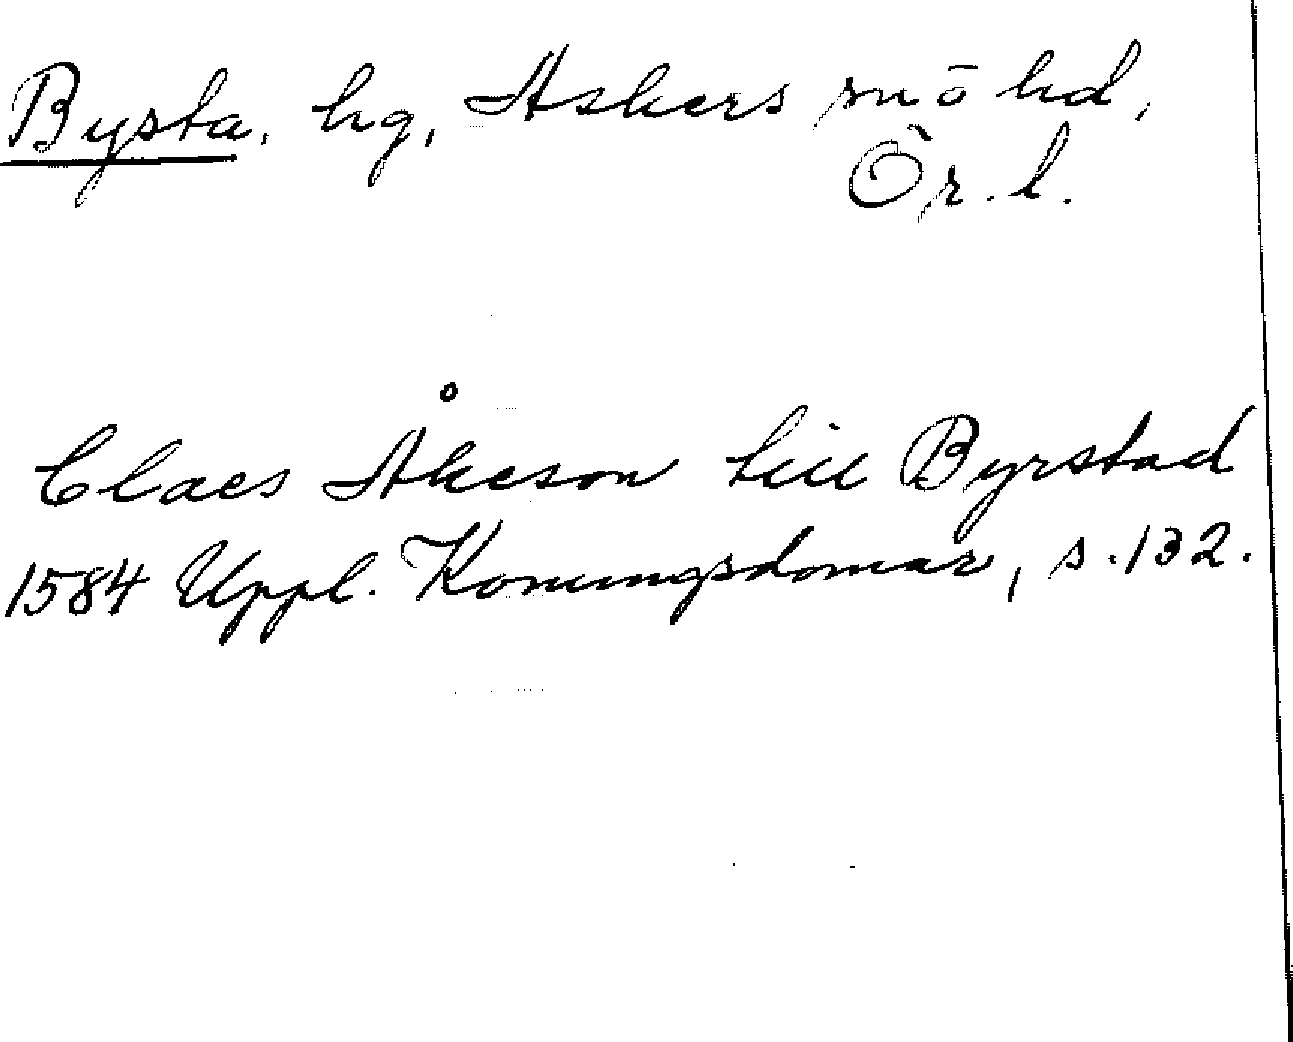 Bysta, hg, Askers sn ö hd,
Ör. l.
Claes Åkeson till Byrstad
1584 Uppl. Konungsdomar, s. 132.